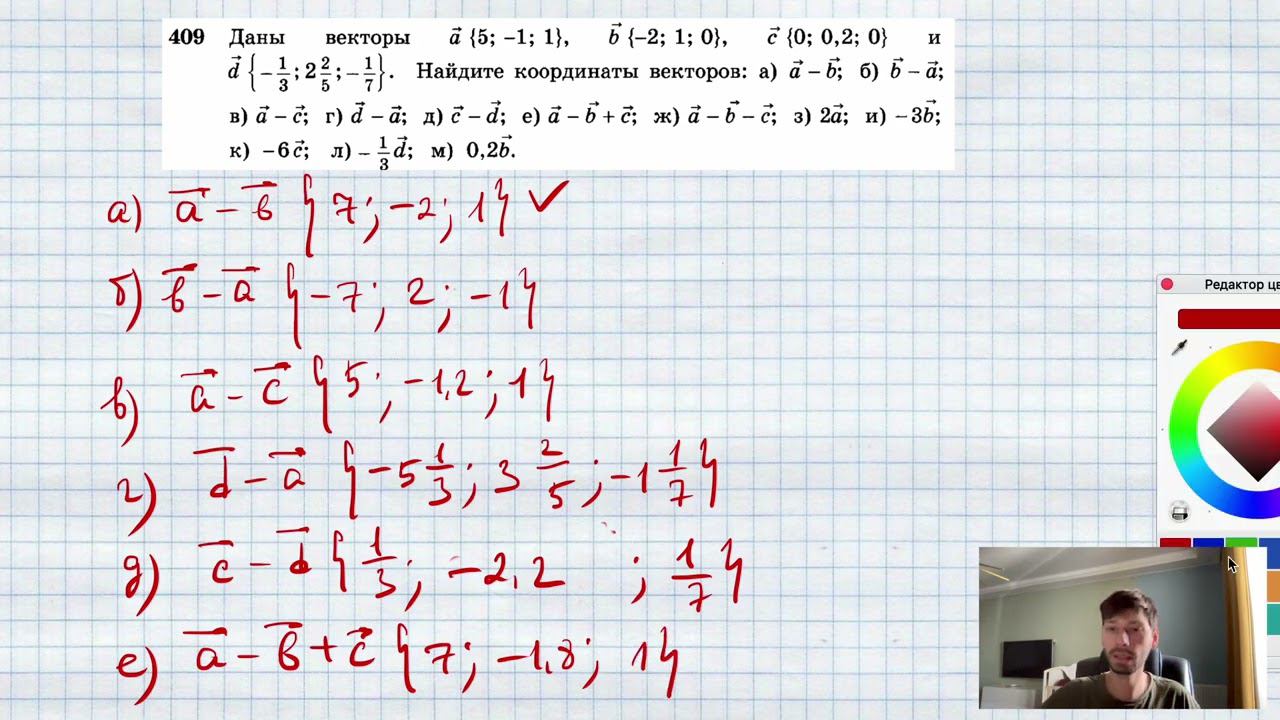 409 Даны векторы a⃗ {5; -1; 1}, b⃗ {-2; 1; 0}, c⃗ {0; 0,2; 0} и
d⃗ {-1/3; 2 2/5; -1/7}. Найдите координаты векторов: а) a⃗ - b⃗; б) b⃗ - a⃗;
в) a⃗ - c⃗; г) d⃗ - a⃗; д) c⃗ - d⃗; е) a⃗ - b⃗ + c⃗; ж) a⃗ - b⃗ - c⃗; з) 2a⃗; и) -3b⃗;
к) -6c⃗; л) -1/3 d⃗; м) 0,2b⃗.
а) a⃗ - b⃗ {7; -2; 1} ✓
б) b⃗ - a⃗ {-7; 2; -1}
в) a⃗ - c⃗ {5; -1,2; 1}
г) d⃗ - a⃗ {-5 1/3; 3 2/5; -1 1/7}
д) c⃗ - d⃗ {1/3; -2,2; 1/7}
е) a⃗ - b⃗ + c⃗ {7; -1,8; 1}
Редактор цв